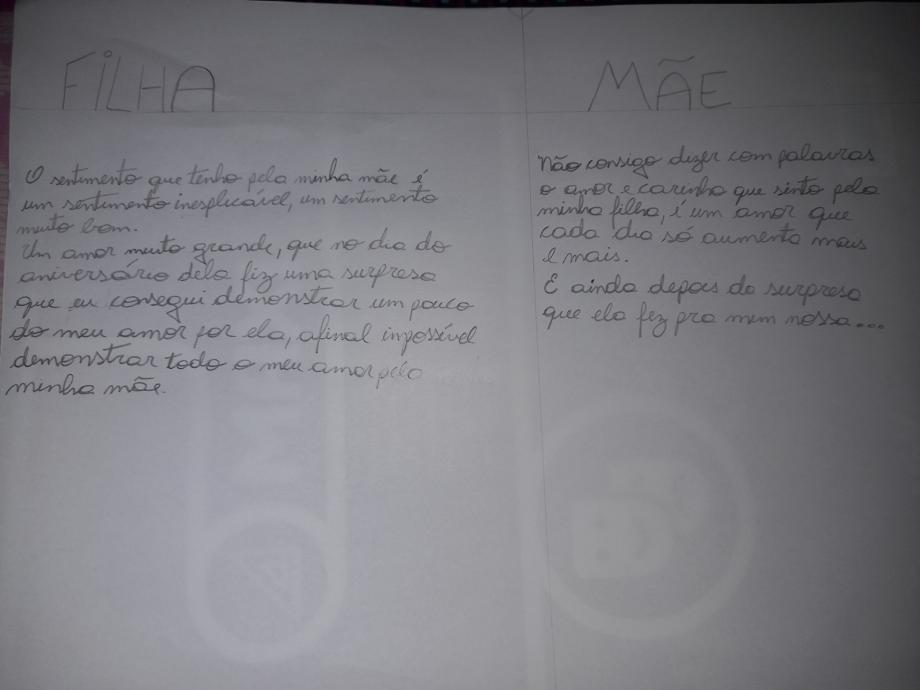 FiLHA
O sentimento que tenho pela minha mãe é
um sentimento inesplicável, um sentimento
muito bom.
Um amor muito grande, que no dia do
aniversário dela fiz uma surpresa
que eu consegui demonstrar um pouco
do meu amor por ela, afinal impossível
demonstrar todo o meu amor pela
minha mãe.
MÃE
Não consigo dizer com palavras
o amor e carinho que sinto pela
minha filha, é um amor que
cada dia só aumenta mais
e mais.
E ainda depois da surpresa
que ela fez pra mim nossa...